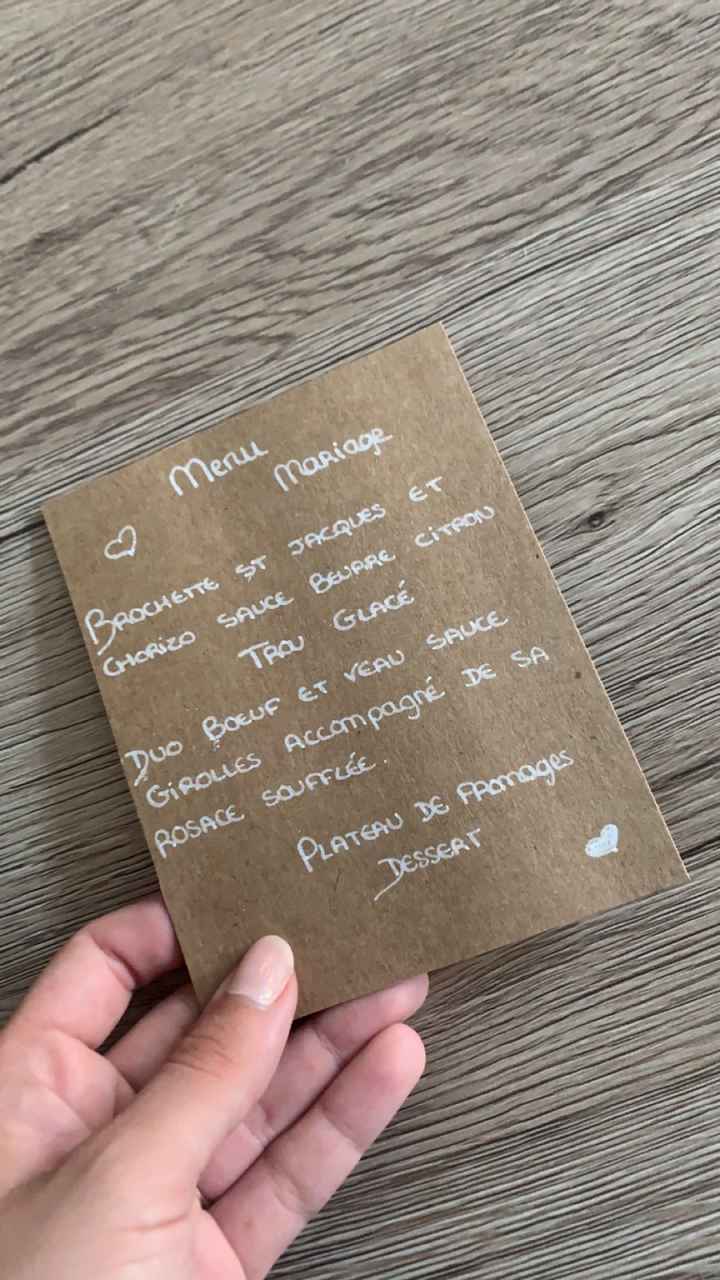 Menu Mariage
Brochette St Jacques et
Chorizo sauce beurre citron
Trou Glacé
Duo Boeuf et veau sauce
Girolles accompagné de sa
rosace soufflée.
Plateau de fromages
Dessert